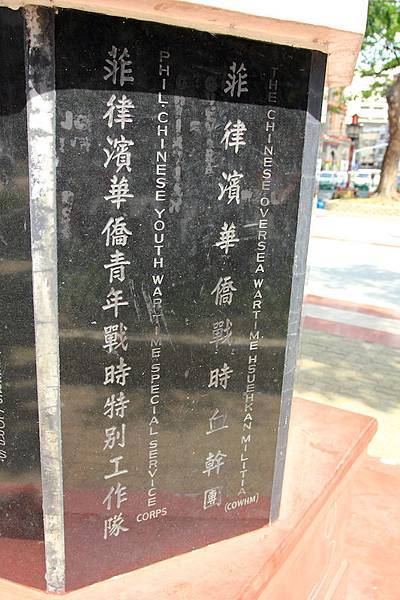 THE CHINESE OVERSEA WARTIME HSUEHKAN MILITIA
(COWHM)
菲律濱華僑戰時血幹團
PHIL. CHINESE YOUTH WARTIME SPECIAL SERVICE
CORPS
菲律濱華僑青年戰時特別工作隊
CORPS